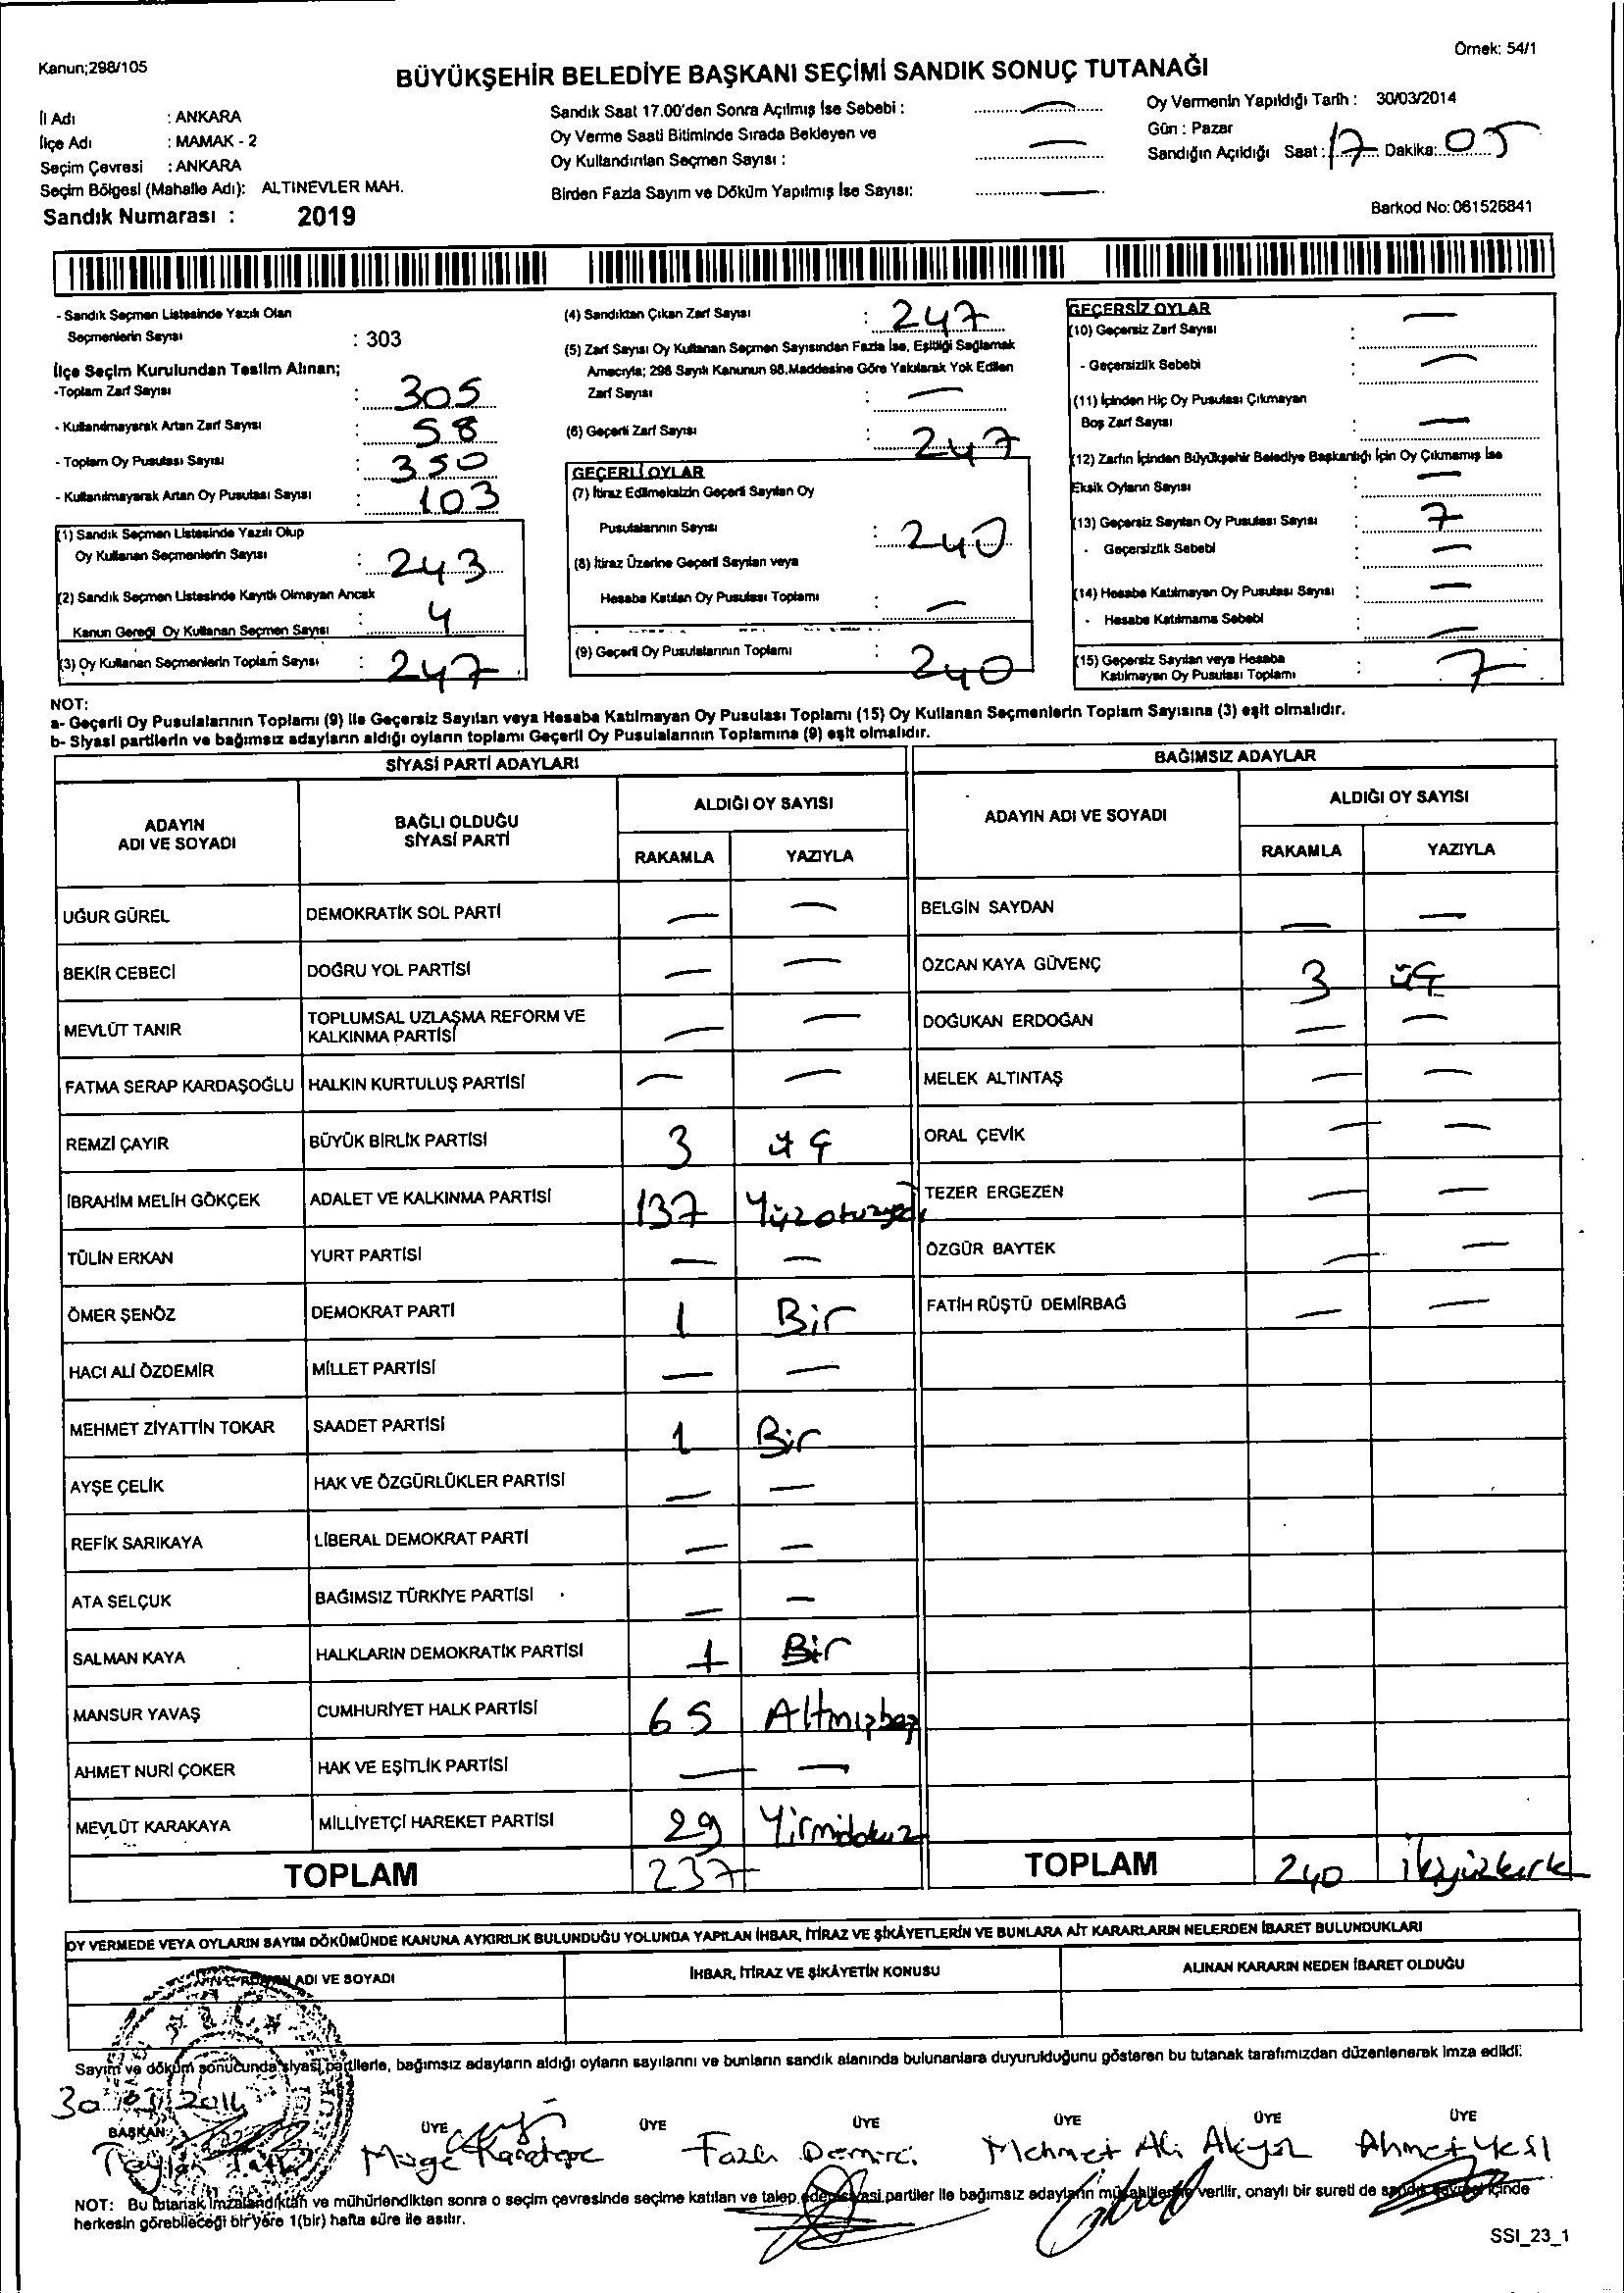 Kanun;298/105
Örnek: 54/1
BÜYÜKŞEHİR BELEDİYE BAŞKANI SEÇİMİ SANDIK SONUÇ TUTANAĞI
İl Adı : ANKARA
İlçe Adı : MAMAK - 2
Seçim Çevresi : ANKARA
Seçim Bölgesi (Mahalle Adı): ALTINEVLER MAH.
Sandık Numarası : 2019
Sandık Saat 17.00'den Sonra Açılmış İse Sebebi : —
Oy Verme Saati Bitiminde Sırada Bekleyen ve
Oy Kullandırılan Seçmen Sayısı : —
Birden Fazla Sayım ve Döküm Yapılmış İse Sayısı: —
Oy Vermenin Yapıldığı Tarih : 30/03/2014
Gün : Pazar
Sandığın Açıldığı Saat : 17 Dakika: 05
Barkod No: 061526841
- Sandık Seçmen Listesinde Yazılı Olan
Seçmenlerin Sayısı : 303
İlçe Seçim Kurulundan Teslim Alınan;
-Toplam Zarf Sayısı : 305
- Kullanılmayarak Artan Zarf Sayısı : 58
- Toplam Oy Pusulası Sayısı : 350
- Kullanılmayarak Artan Oy Pusulası Sayısı : 103
(1) Sandık Seçmen Listesinde Yazılı Olup
Oy Kullanan Seçmenlerin Sayısı : 243
(2) Sandık Seçmen Listesinde Kayıtlı Olmayan Ancak
Kanun Gereği Oy Kullanan Seçmen Sayısı : 4
(3) Oy Kullanan Seçmenlerin Toplam Sayısı : 247
(4) Sandıktan Çıkan Zarf Sayısı : 247
(5) Zarf Sayısı Oy Kullanan Seçmen Sayısından Fazla İse, Eşitliği Sağlamak
Amacıyla; 298 Sayılı Kanunun 98.Maddesine Göre Yakılarak Yok Edilen
Zarf Sayısı : —
(6) Geçerli Zarf Sayısı : 247
GEÇERLİ OYLAR
(7) İtiraz Edilmeksizin Geçerli Sayılan Oy
Pusulalarının Sayısı : 240
(8) İtiraz Üzerine Geçerli Sayılan veya
Hesaba Katılan Oy Pusulası Toplamı : —
(9) Geçerli Oy Pusulalarının Toplamı : 240
GEÇERSİZ OYLAR
(10) Geçersiz Zarf Sayısı : —
- Geçersizlik Sebebi : —
(11) İçinden Hiç Oy Pusulası Çıkmayan
Boş Zarf Sayısı : —
(12) Zarfın İçinden Büyükşehir Belediye Başkanlığı İçin Oy Çıkmamış İse
Eksik Oyların Sayısı : —
(13) Geçersiz Sayılan Oy Pusulası Sayısı : 7
- Geçersizlik Sebebi : —
(14) Hesaba Katılmayan Oy Pusulası Sayısı : —
- Hesaba Katılmama Sebebi : —
(15) Geçersiz Sayılan veya Hesaba
Katılmayan Oy Pusulası Toplamı : 7
NOT:
a- Geçerli Oy Pusulalarının Toplamı (9) ile Geçersiz Sayılan veya Hesaba Katılmayan Oy Pusulası Toplamı (15) Oy Kullanan Seçmenlerin Toplam Sayısına (3) eşit olmalıdır.
b- Siyasi partilerin ve bağımsız adayların aldığı oyların toplamı Geçerli Oy Pusulalarının Toplamına (9) eşit olmalıdır.
SİYASİ PARTİ ADAYLARI
ADAYIN ADI VE SOYADI
BAĞLI OLDUĞU SİYASİ PARTİ
ALDIĞI OY SAYISI
RAKAMLA YAZIYLA
UĞUR GÜREL DEMOKRATİK SOL PARTİ — —
BEKİR CEBECİ DOĞRU YOL PARTİSİ — —
MEVLÜT TANIR TOPLUMSAL UZLAŞMA REFORM VE KALKINMA PARTİSİ — —
FATMA SERAP KARDAŞOĞLU HALKIN KURTULUŞ PARTİSİ — —
REMZİ ÇAYIR BÜYÜK BİRLİK PARTİSİ 3 üç
İBRAHİM MELİH GÖKÇEK ADALET VE KALKINMA PARTİSİ 137 Yüzotuzyedi
TÜLİN ERKAN YURT PARTİSİ — —
ÖMER ŞENÖZ DEMOKRAT PARTİ 1 Bir
HACI ALİ ÖZDEMİR MİLLET PARTİSİ — —
MEHMET ZİYATTİN TOKAR SAADET PARTİSİ 1 Bir
AYŞE ÇELİK HAK VE ÖZGÜRLÜKLER PARTİSİ — —
REFİK SARIKAYA LİBERAL DEMOKRAT PARTİ — —
ATA SELÇUK BAĞIMSIZ TÜRKİYE PARTİSİ — —
SALMAN KAYA HALKLARIN DEMOKRATİK PARTİSİ 1 Bir
MANSUR YAVAŞ CUMHURİYET HALK PARTİSİ 65 Altmışbeş
AHMET NURİ ÇOKER HAK VE EŞİTLİK PARTİSİ — —
MEVLÜT KARAKAYA MİLLİYETÇİ HAREKET PARTİSİ 29 Yirmidokuz
TOPLAM 237
BAĞIMSIZ ADAYLAR
ADAYIN ADI VE SOYADI
ALDIĞI OY SAYISI
RAKAMLA YAZIYLA
BELGİN SAYDAN — —
ÖZCAN KAYA GÜVENÇ 3 üç
DOĞUKAN ERDOĞAN — —
MELEK ALTINTAŞ — —
ORAL ÇEVİK — —
TEZER ERGEZEN — —
ÖZGÜR BAYTEK — —
FATİH RÜŞTÜ DEMİRBAĞ — —
TOPLAM 240 ikiyüzkırk
OY VERMEDE VEYA OYLARIN SAYIM DÖKÜMÜNDE KANUNA AYKIRILIK BULUNDUĞU YOLUNDA YAPILAN İHBAR, İTİRAZ VE ŞİKÂYETLERİN VE BUNLARA AİT KARARLARIN NELERDEN İBARET BULUNDUKLARI
ADI VE SOYADI
İHBAR, İTİRAZ VE ŞİKÂYETİN KONUSU
ALINAN KARARIN NEDEN İBARET OLDUĞU
Sayım ve döküm sonucunda siyasi partilerle, bağımsız adayların aldığı oyların sayılarını ve bunların sandık alanında bulunanlara duyurulduğunu gösteren bu tutanak tarafımızdan düzenlenerek imza edildi.
30/03/2014
BAŞKAN ÜYE ÜYE ÜYE ÜYE ÜYE ÜYE
Müge Karatepe Fazlı Demirci Mehmet Ali Akyol Ahmet
NOT: Bu tutanak imzalandıktan ve mühürlendikten sonra o seçim çevresinde seçime katılan ve talep eden siyasi partiler ile bağımsız adayların müşahitlerine verilir, onaylı bir sureti de sandık çevresi içinde
herkesin görebileceği bir yere 1(bir) hafta süre ile asılır.
SSI_23_1